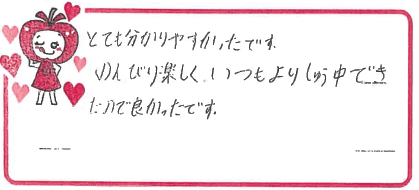 とても分かりやすかったです。
のんびり楽しく、いつもよりしゅう中でき
たので良かったです。